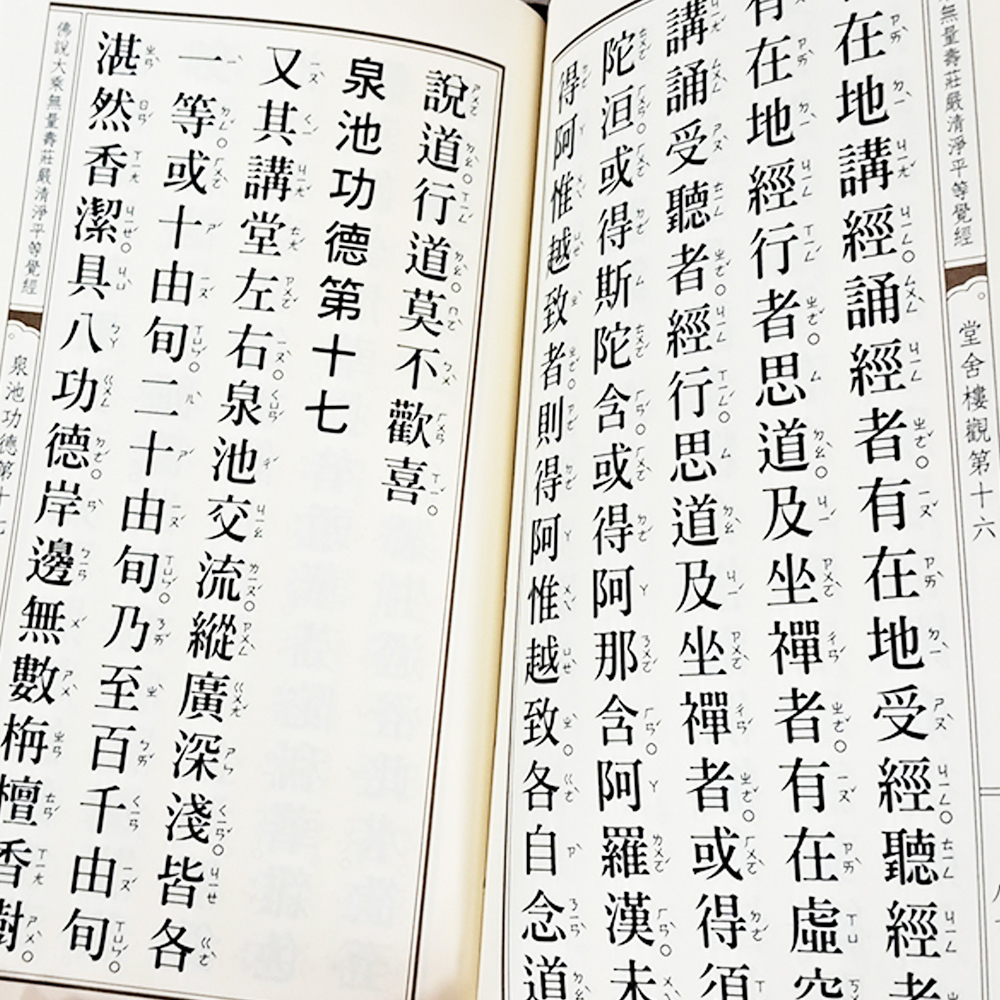 無量壽莊嚴清淨平等覺經
堂舍樓觀第十六
在地講經。誦經者。有在地受經。聽經者
有在地經行者。思道。及坐禪者。有在虛空
講誦受聽者。經行。思道。及坐禪者。或得須
陀洹。或得斯陀含。或得阿那含。阿羅漢。未
得阿惟越致者。則得阿惟越致。各自念道
說道。行道。莫不歡喜。
泉池功德第十七
又其講堂左右。泉池交流。縱廣深淺。皆各
一等。或十由旬。二十由旬。乃至百千由旬。
湛然香潔。具八功德。岸邊無數栴檀香樹。
佛說大乘無量壽莊嚴清淨平等覺經
泉池功德第十七